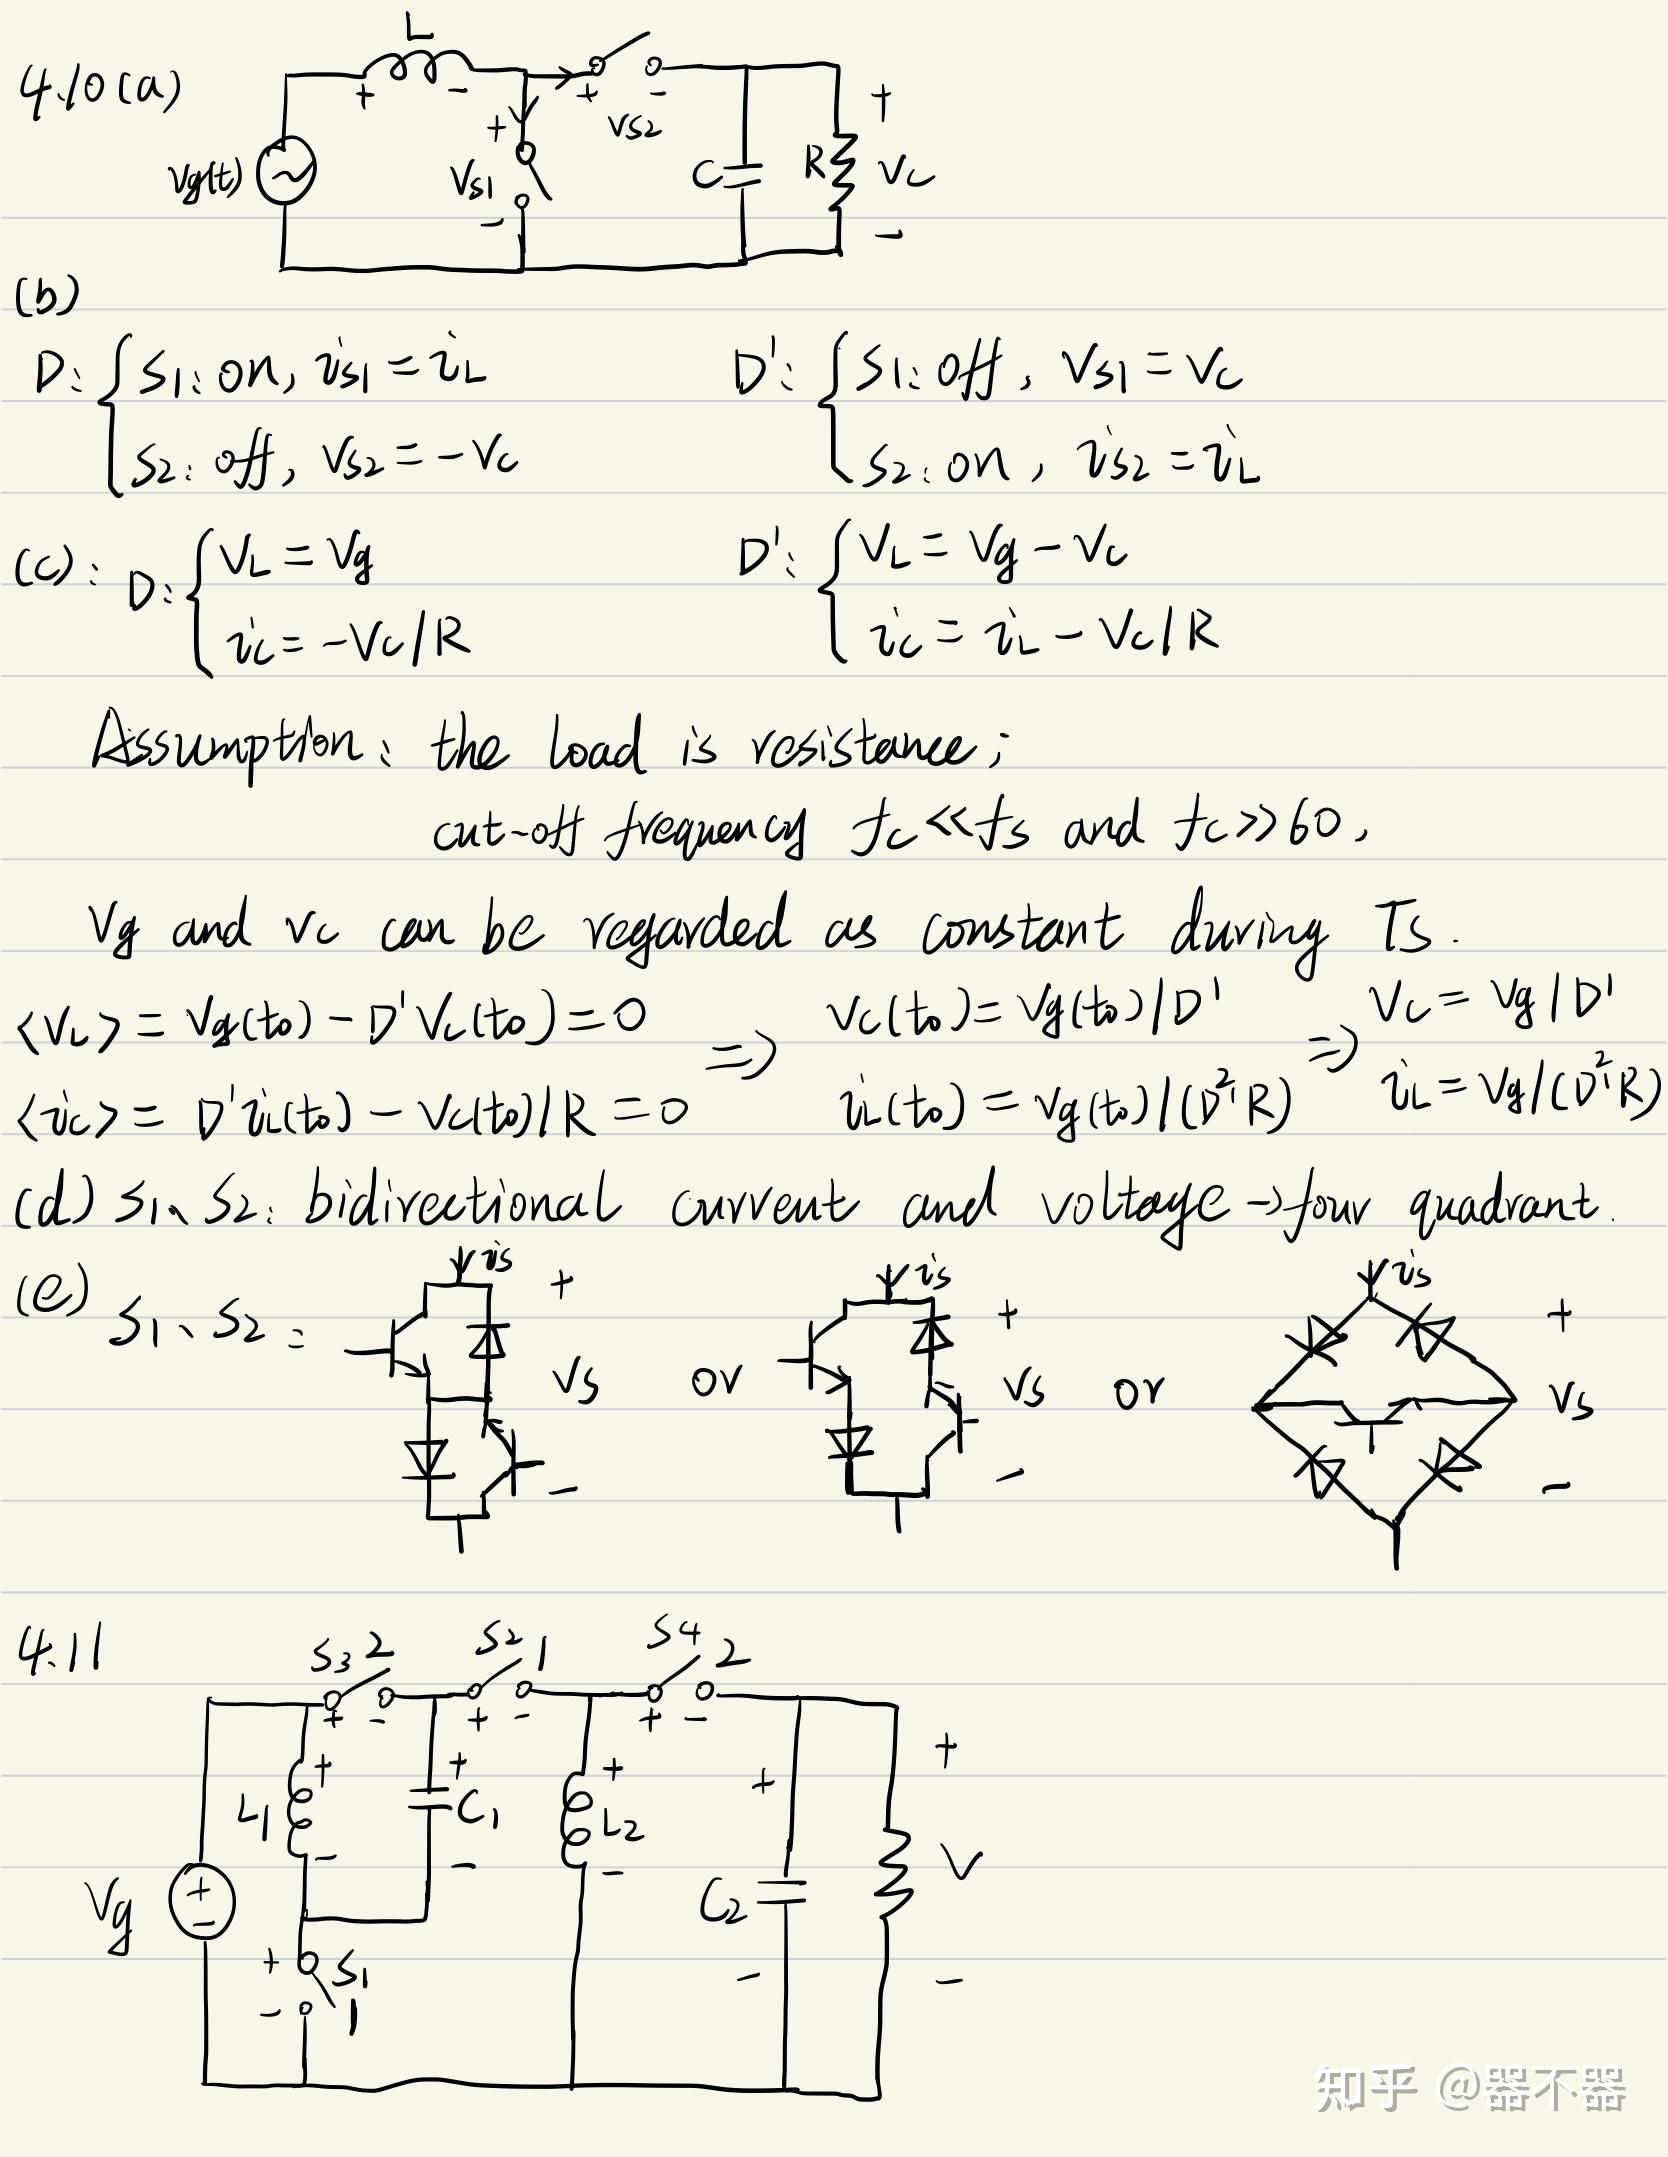 4.10 (a)
L
+ -
+ -
vs2
+
vg(t)
vs1
-
C
R
+
vc
-
(b)
D: { S1: on, is1 = iL
S2: off, vs2 = -vc
D': { S1: off, vs1 = vc
S2: on, is2 = iL
(c): D: { vL = vg
ic = -vc/R
D': { vL = vg - vc
ic = iL - vc/R
Assumption: the load is resistance;
cut-off frequency fc << fs and fc >> 60,
vg and vc can be regarded as constant during Ts.
<vL> = vg(t0) - D'vc(t0) = 0 => vc(t0) = vg(t0)/D' => vc = vg/D'
<ic> = D'iL(t0) - vc(t0)/R = 0 iL(t0) = vg(t0)/(D'²R) iL = vg/(D'²R)
(d) S1、S2: bidirectional current and voltage → four quadrant.
(e) S1、S2 =
is
+
vs
-
or
is
+
vs
-
or
is
+
vs
-
4.11
S3 2
S2 1
S4 2
+ -
+ -
+ -
Vg
+
-
+
L1
-
+
C1
-
+
L2
-
+
C2
-
+
V
-
+
S1
-
1
知乎 @器不器